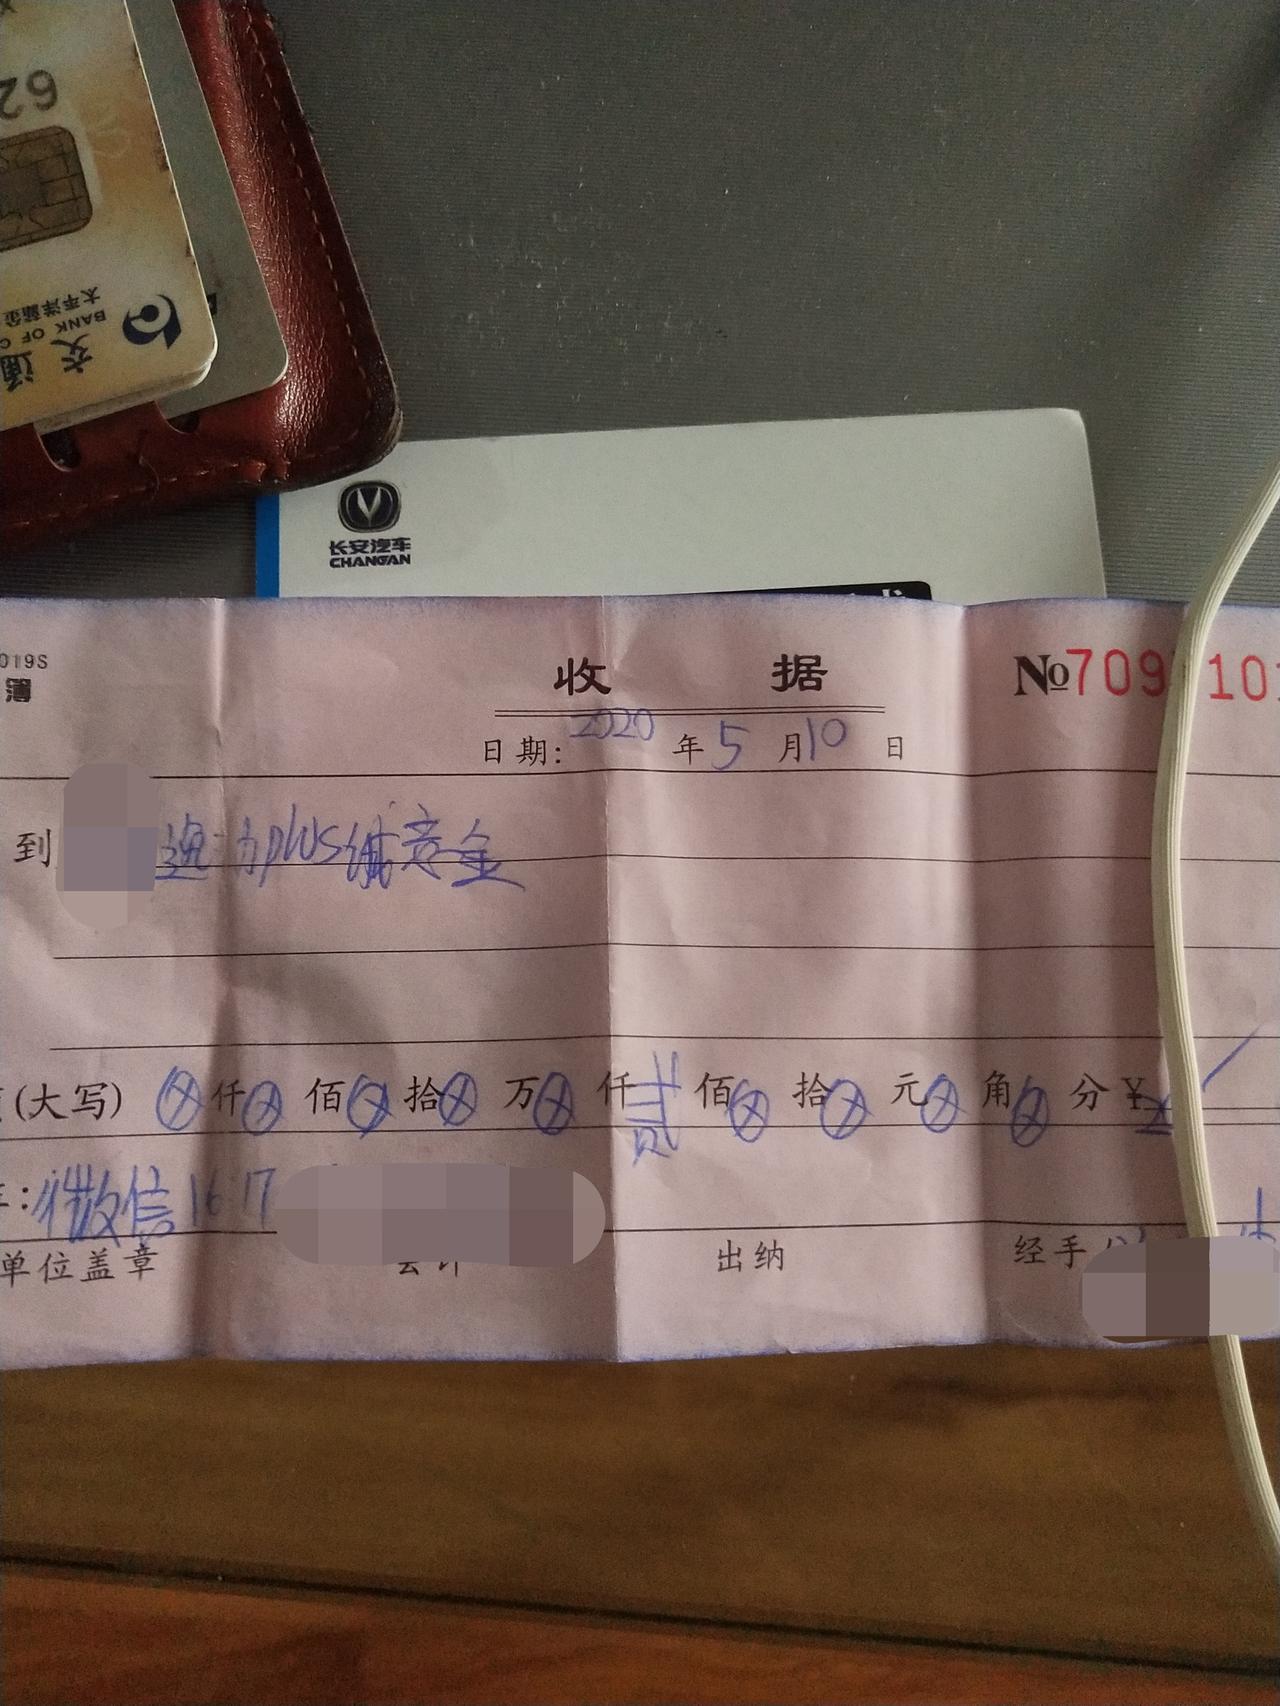 62
太平洋借记
BANK OF C
交通
长安汽车
CHANGAN
019S
收 据
№709 10
日期: 2020 年 5 月 10 日
到 逸动plus诚意金
(大写) ⊗仟⊗佰⊗拾⊗万⊗仟贰佰⊗拾⊗元⊗角⊗分¥
微信1617
单位盖章 会计 出纳 经手